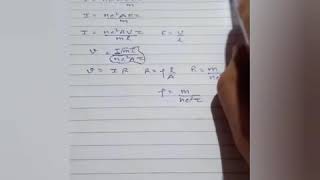 I = ne²AEτ/m
I = ne²AVτ/ml E = V/l
V = Iml/ne²Aτ
V = IR R = ρ l/A R = m
ρ = m/ne²τ